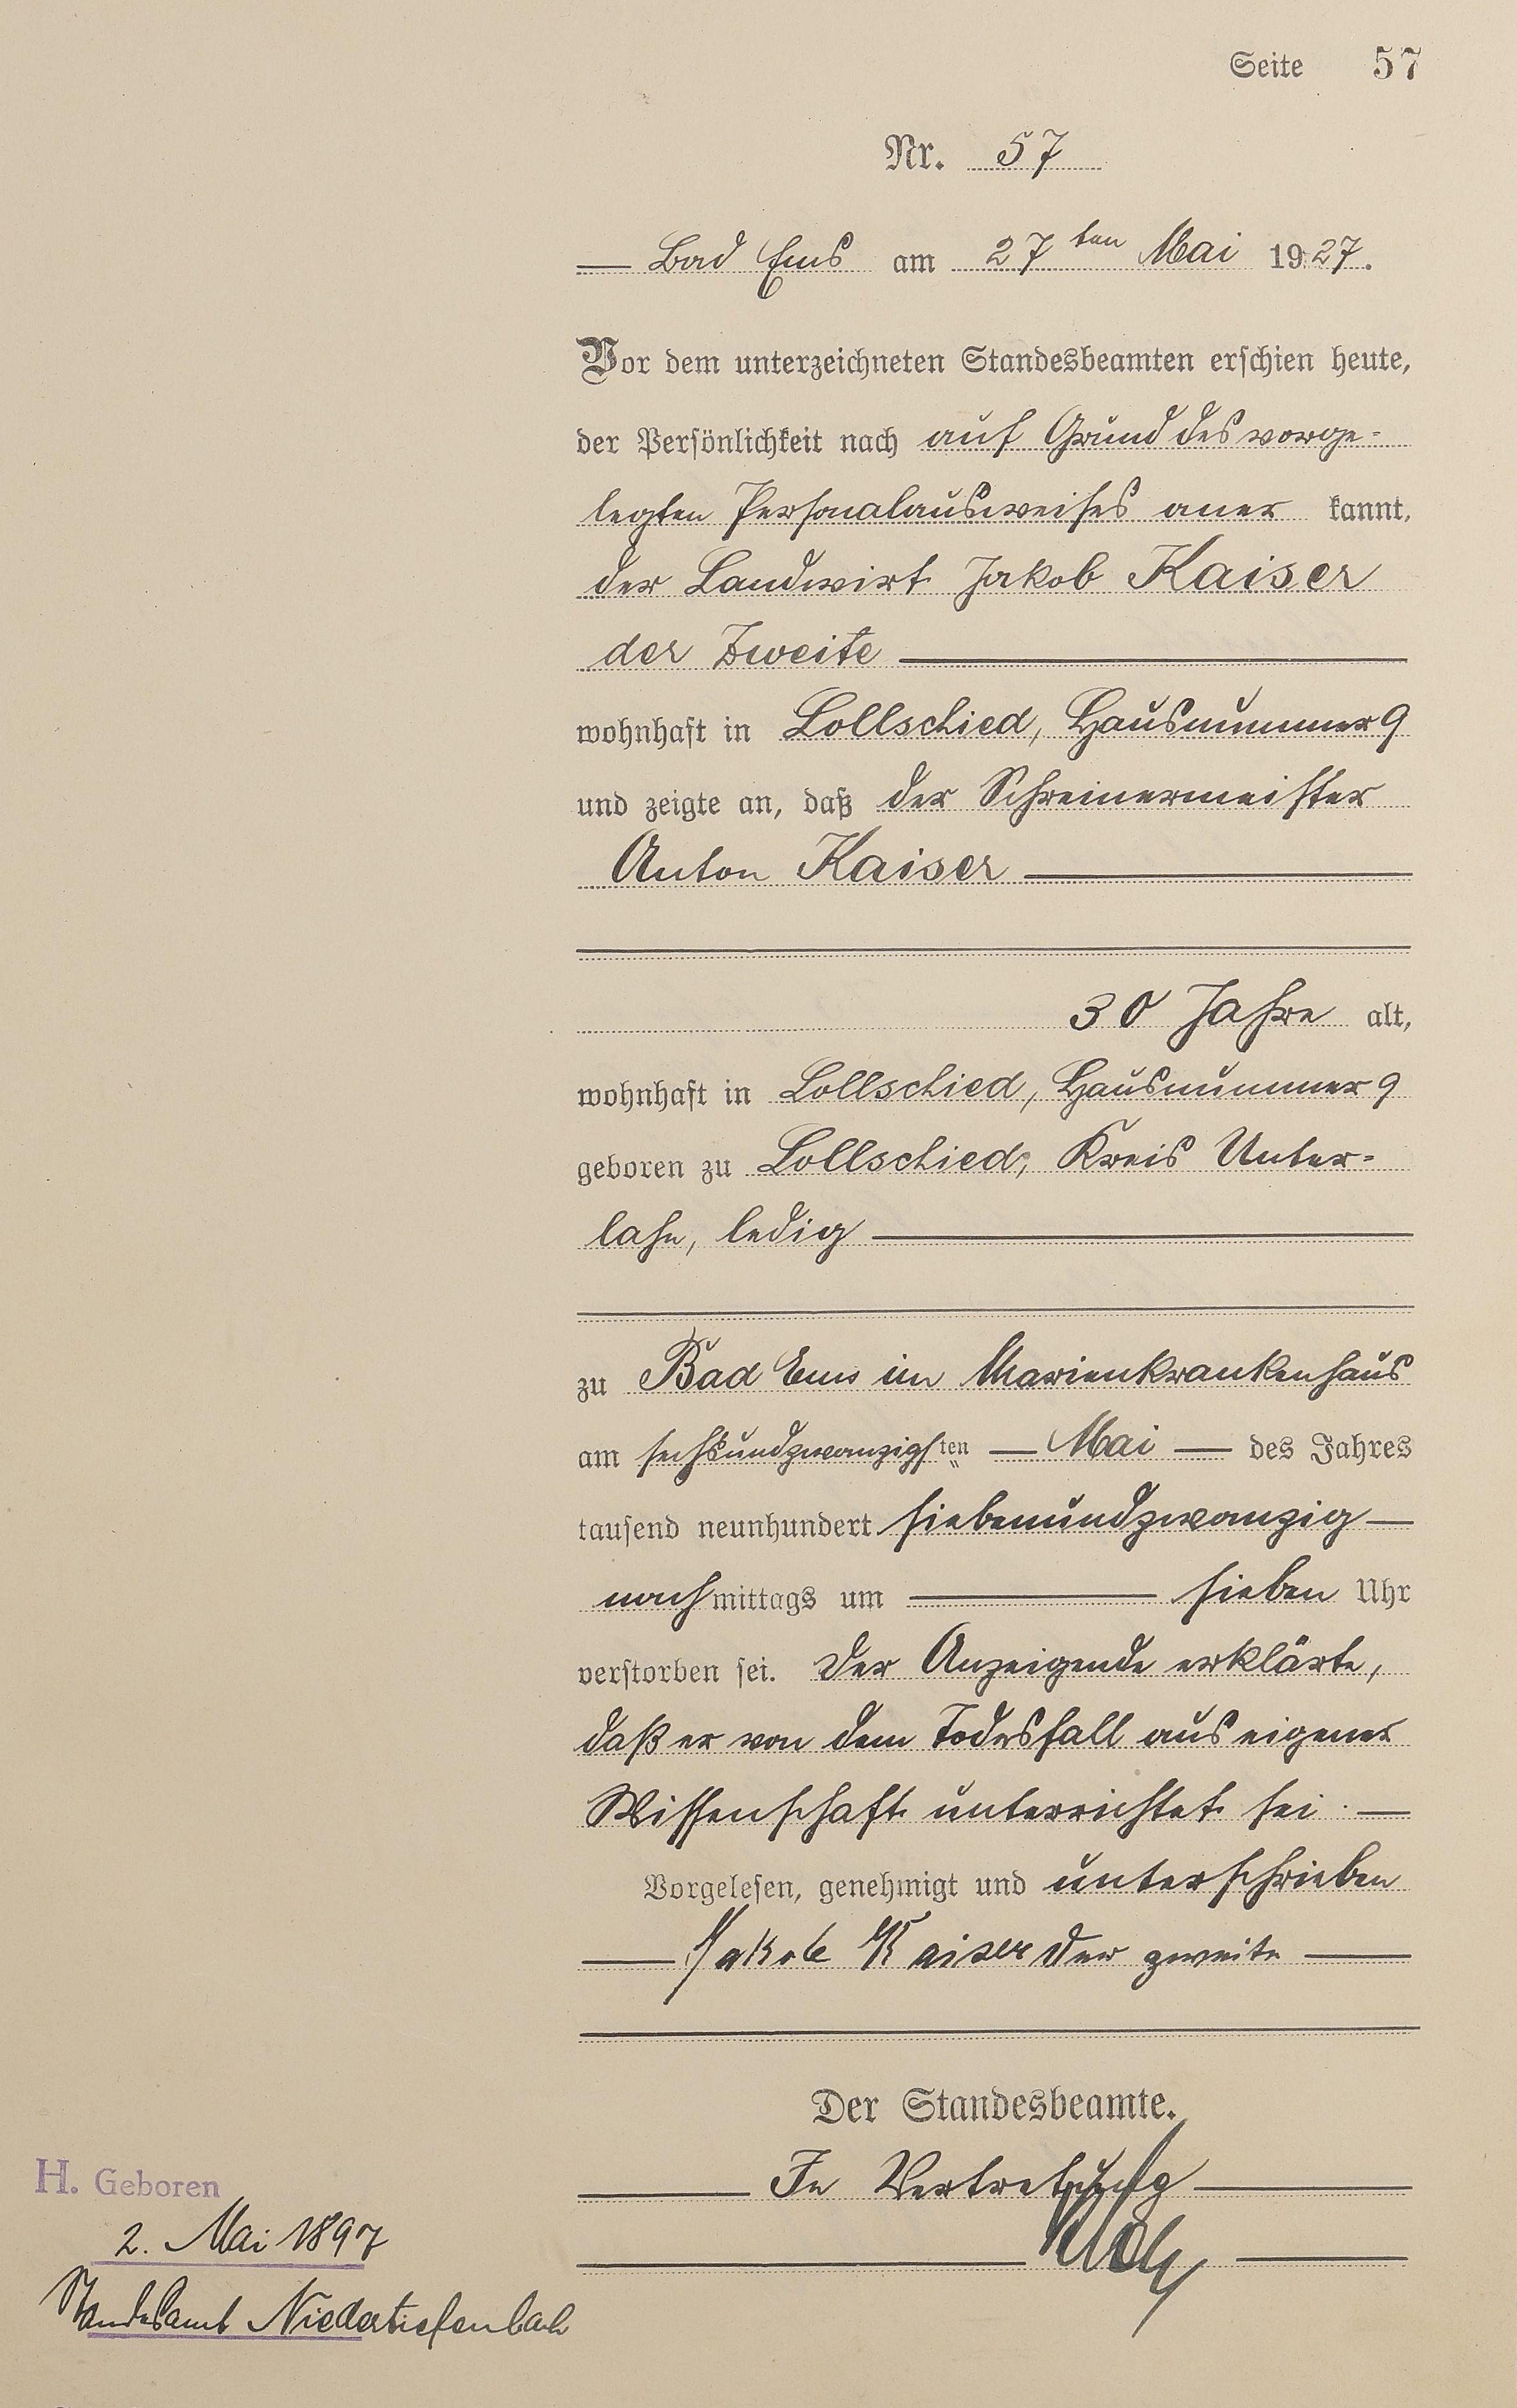 Seite 57
Nr. 57
Bad Ems am 27ten Mai 1927.
Vor dem unterzeichneten Standesbeamten erschien heute,
der Persönlichkeit nach auf Grund des vorge-
legten Personalausweises aner kannt,
der Landwirt Jakob Kaiser
der Zweite
wohnhaft in Lollschied, Hausnummer 9
und zeigte an, daß der Schreinermeister
Anton Kaiser
30 Jahre alt,
wohnhaft in Lollschied, Hausnummer 9
geboren zu Lollschied, Kreis Unter-
lahn, ledig
zu Bad Ems im Marienkrankenhaus
am sechsundzwanzigsten Mai des Jahres
tausend neunhundert siebenundzwanzig
nachmittags um sieben Uhr
verstorben sei. Der Anzeigende erklärte,
daß er von dem Todesfall aus eigener
Wissenschaft unterrichtet sei.
Vorgelesen, genehmigt und unterschrieben
Jakob Kaiser der zweite
Der Standesbeamte.
In Vertretung
H. Geboren
2. Mai 1897
Standesamt Niedertiefenbach